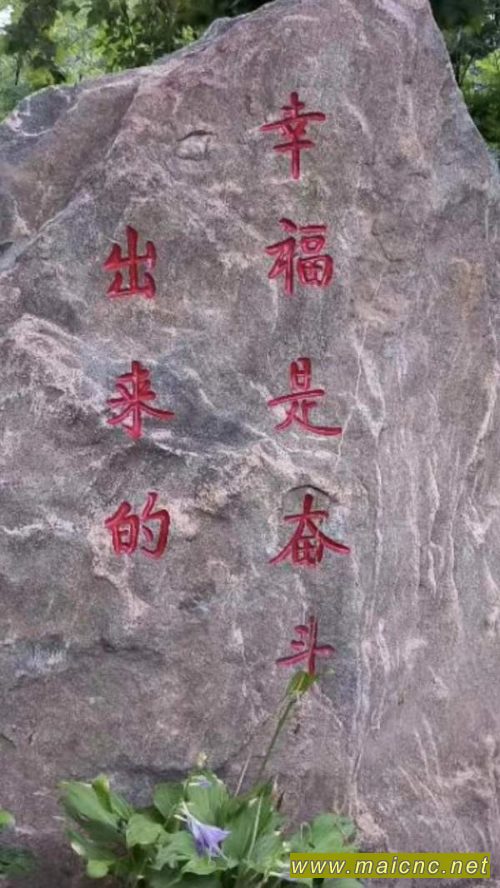 幸福是奋斗
出来的
www.maicnc.net